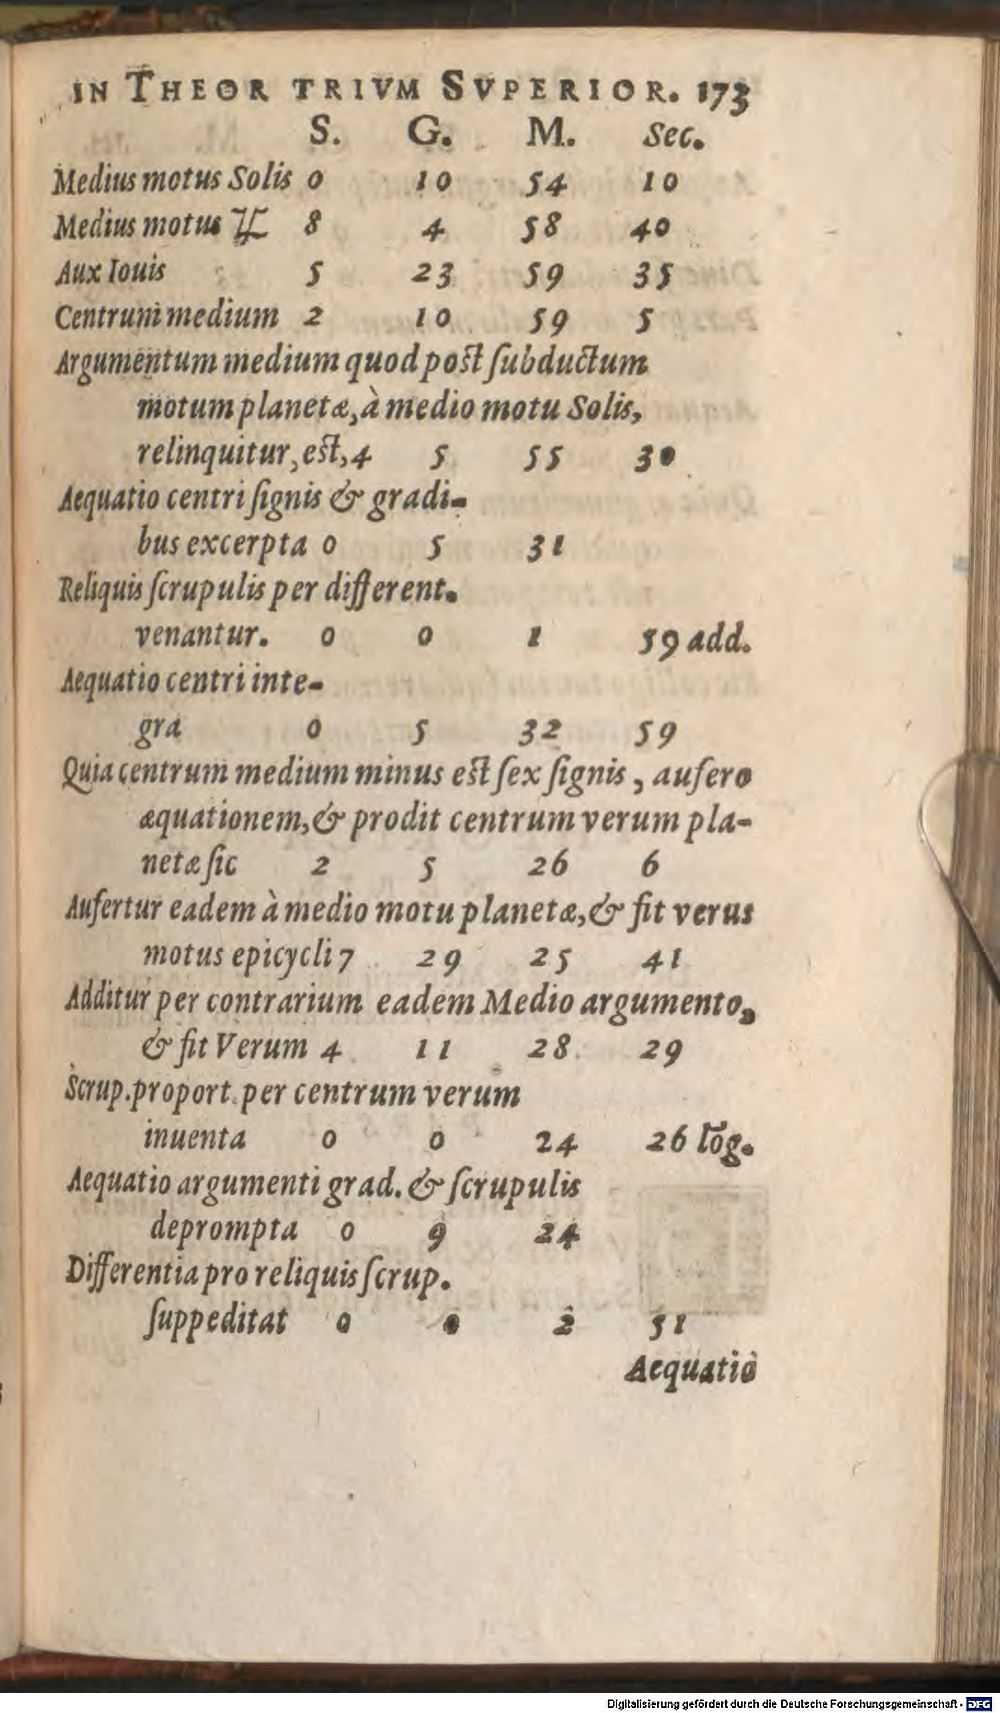 IN THEOR TRIVM SVPERIOR. 173
S. G. M. Sec.
Medius motus Solis 0 10 54 10
Medius motus ♃ 8 4 58 40
Aux Iouis 5 23 59 35
Centrum medium 2 10 59 5
Argumentum medium quod post ſubductum
motum planetæ, à medio motu Solis,
relinquitur, est, 4 5 55 30
Aequatio centri ſignis & gradi-
bus excerpta 0 5 31
Reliquis ſcrupulis per different.
venantur. 0 0 1 59 add.
Aequatio centri inte-
gra 0 5 32 59
Quia centrum medium minus est ſex ſignis, aufero
æquationem, & prodit centrum verum pla-
netæ ſic 2 5 26 6
Aufertur eadem à medio motu planetæ, & fit verus
motus epicycli 7 29 25 41
Additur per contrarium eadem Medio argumento,
& fit Verum 4 11 28 29
Scrup. proport. per centrum verum
inuenta 0 0 24 26 lōg.
Aequatio argumenti grad. & ſcrupulis
deprompta 0 9 24
Differentia pro reliquis ſcrup.
ſuppeditat 0 0 2 51
Aequatio
Digitalisierung gefördert durch die Deutsche Forschungsgemeinschaft - DFG